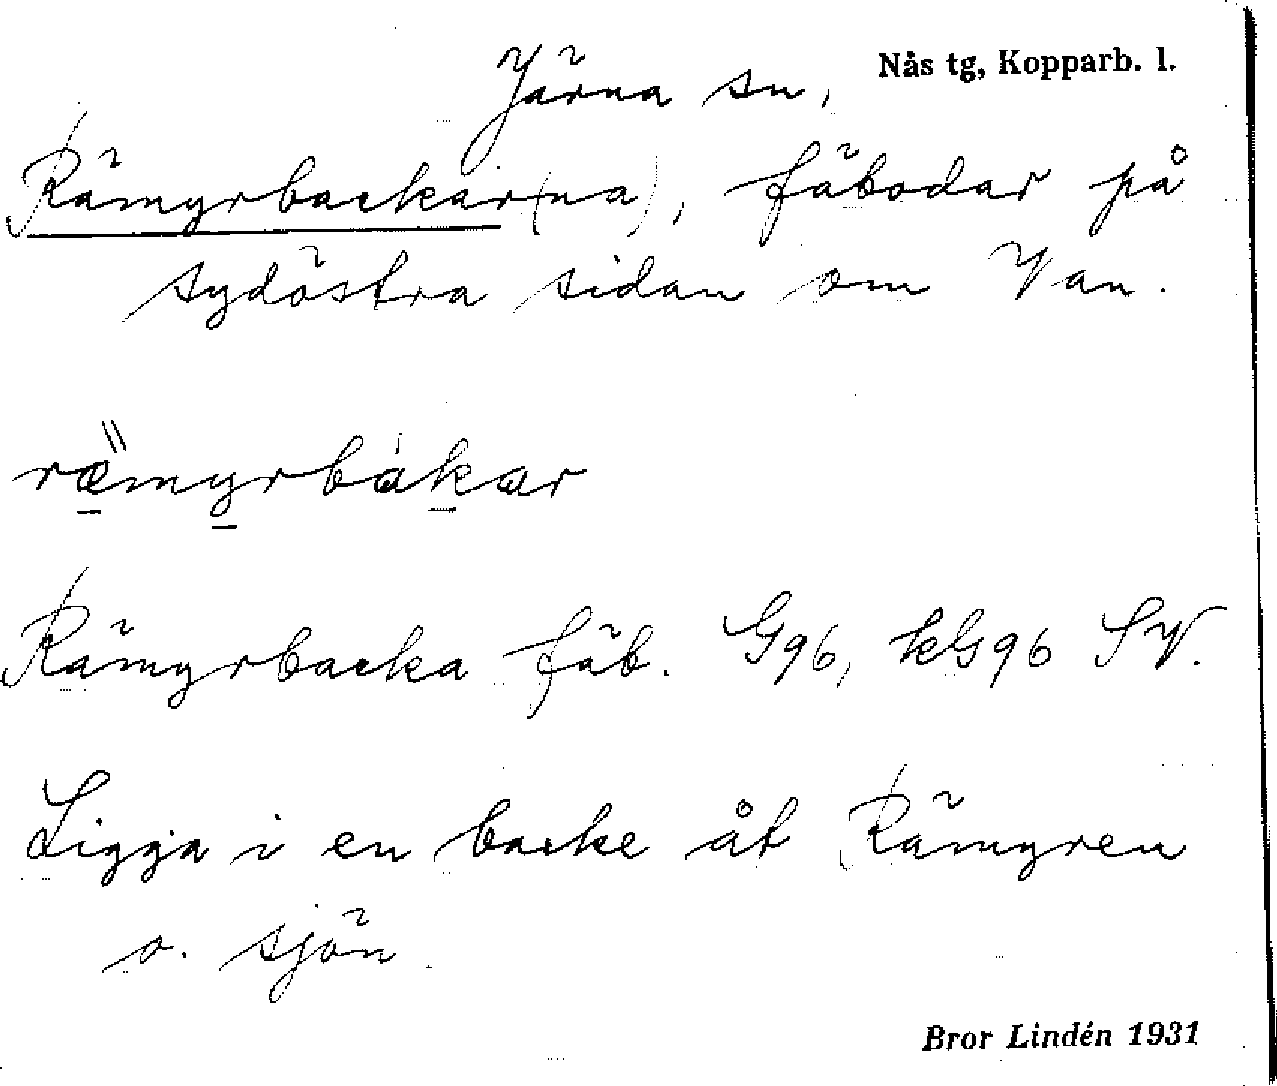 Järna sn, Nås tg, Kopparb. l.
Rämyrbackar(na), fäbodar på
sydöstra sidan om Van.
ræ̀myrbákar
Rämyrbacka fäb. G96, kG96 SV.
Ligga i en backe åt Rämyren
o. sjön
Bror Lindén 1931